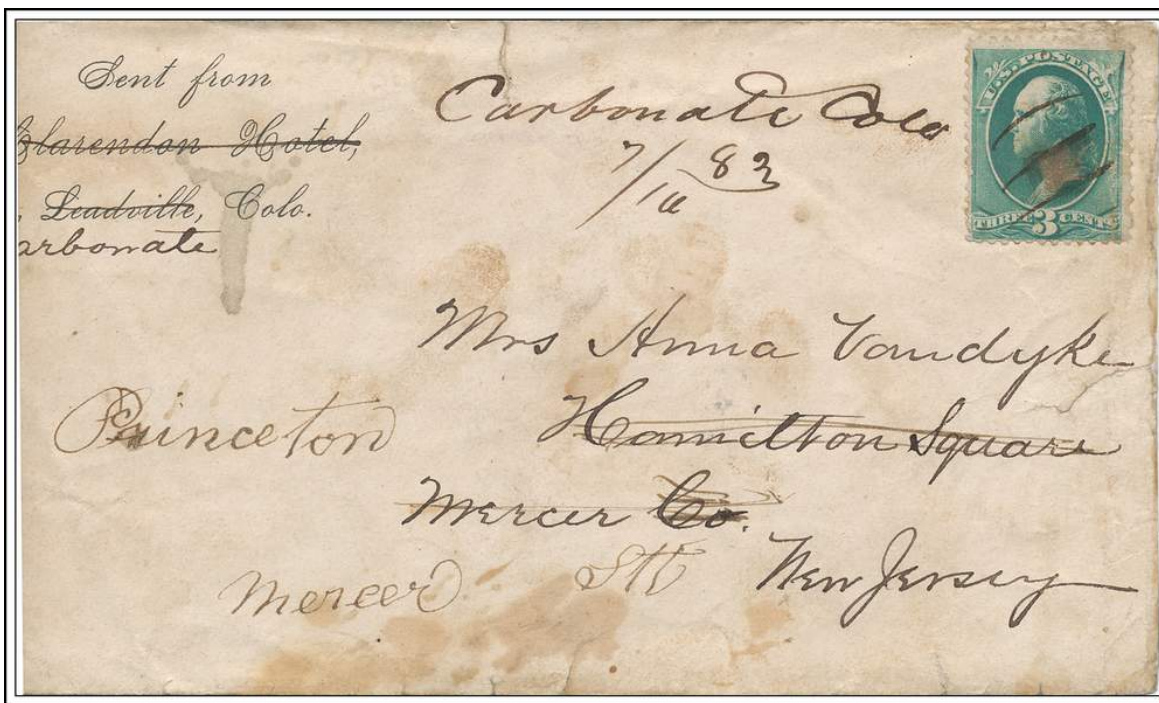 Sent from
Clarendon Hotel,
Leadville, Colo.
arbonate
Carbonate Colo
7/16 83
U.S. POSTAGE
THREE 3 CENTS
Mrs Anna Vandyke
Princeton
Hamilton Square
Mercer Co.
New Jersey
Mercer Stt